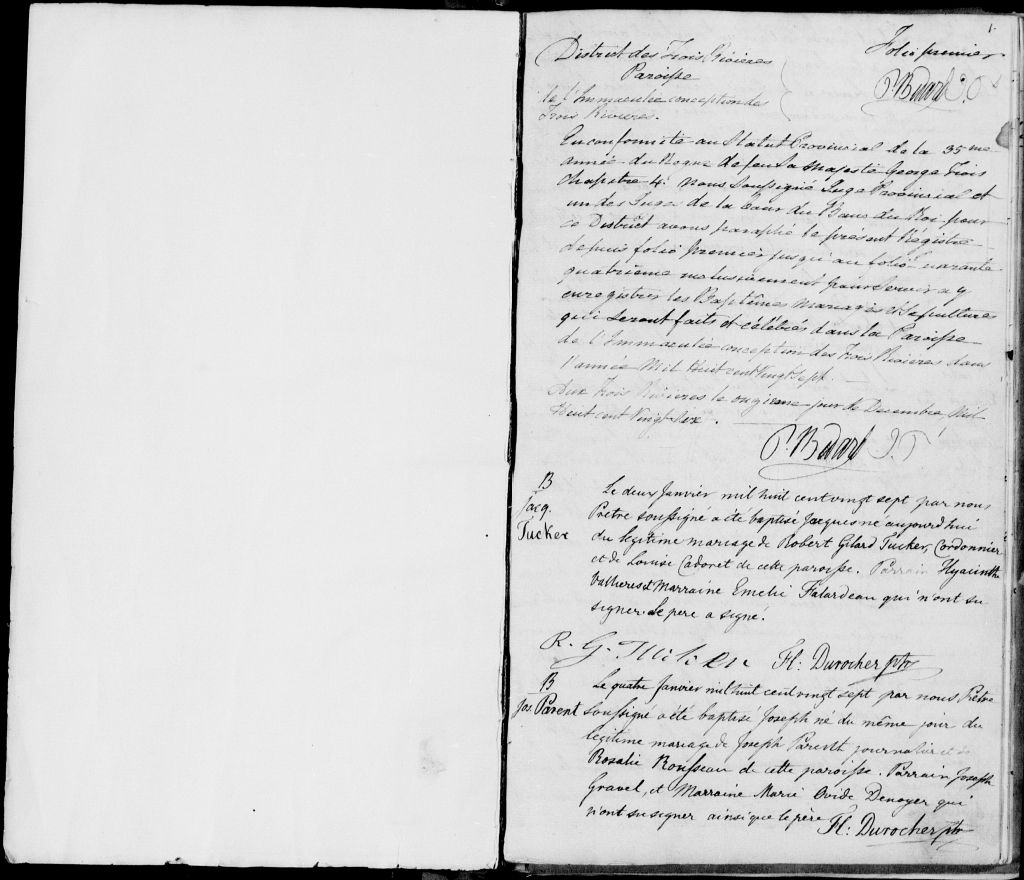 1.
Folio premier
P. Bedard J. P.
District des Trois Rivières
Paroisse
de l'Immaculée conception des
Trois Rivieres.
En conformité au Statut Provincial de la 35me
année du Regne de feu Sa Majesté George Trois
Chapitre 4. nous Soussigné Juge Provincial et
un des Juges de la Cour du Banc du Roi pour
ce District avons paraphé le présent Régistre
depuis folio premier jusqu'au folio Quarante
quatrieme inclusivement pour servir a y
enregistrer les Baptêmes Mariages et Sepultures
qui seront faits et célébrés dans la Paroisse
de l'Immaculée conception des Trois Rivieres dans
l'année Mil Huit cent Vingt Sept.
Aux Trois Rivieres le onzieme jour de Decembre Mil
Huit cent Vingt Six.
P. Bedard J. P.
B
Jacq.
Tucker
Le deux Janvier mil huit cent vingt sept par nous
Prêtre soussigné a été baptisé Jacques né aujourd'hui
du légitime mariage de Robert Gilard Tucker, Cordonnier
et de Louise Cadoret de cette paroisse. Parrain Hyacinthe
Vallieres et Marraine Emelie Falardeau qui n'ont su
signer. Le pere a signé.
R. G. Fl: Durocher ptr
B
Jos. Parent
Le quatre Janvier mil huit cent vingt sept par nous Prêtre
soussigné a été baptisé Joseph né du même jour du
légitime mariage de Joseph Parent journalier et de
Rosalie Rousseau de cette paroisse. Parrain Joseph
Gravel, et Marraine Marie Ovide Denoyer qui
n'ont su signer ainsi que le père
Fl: Durocher ptr